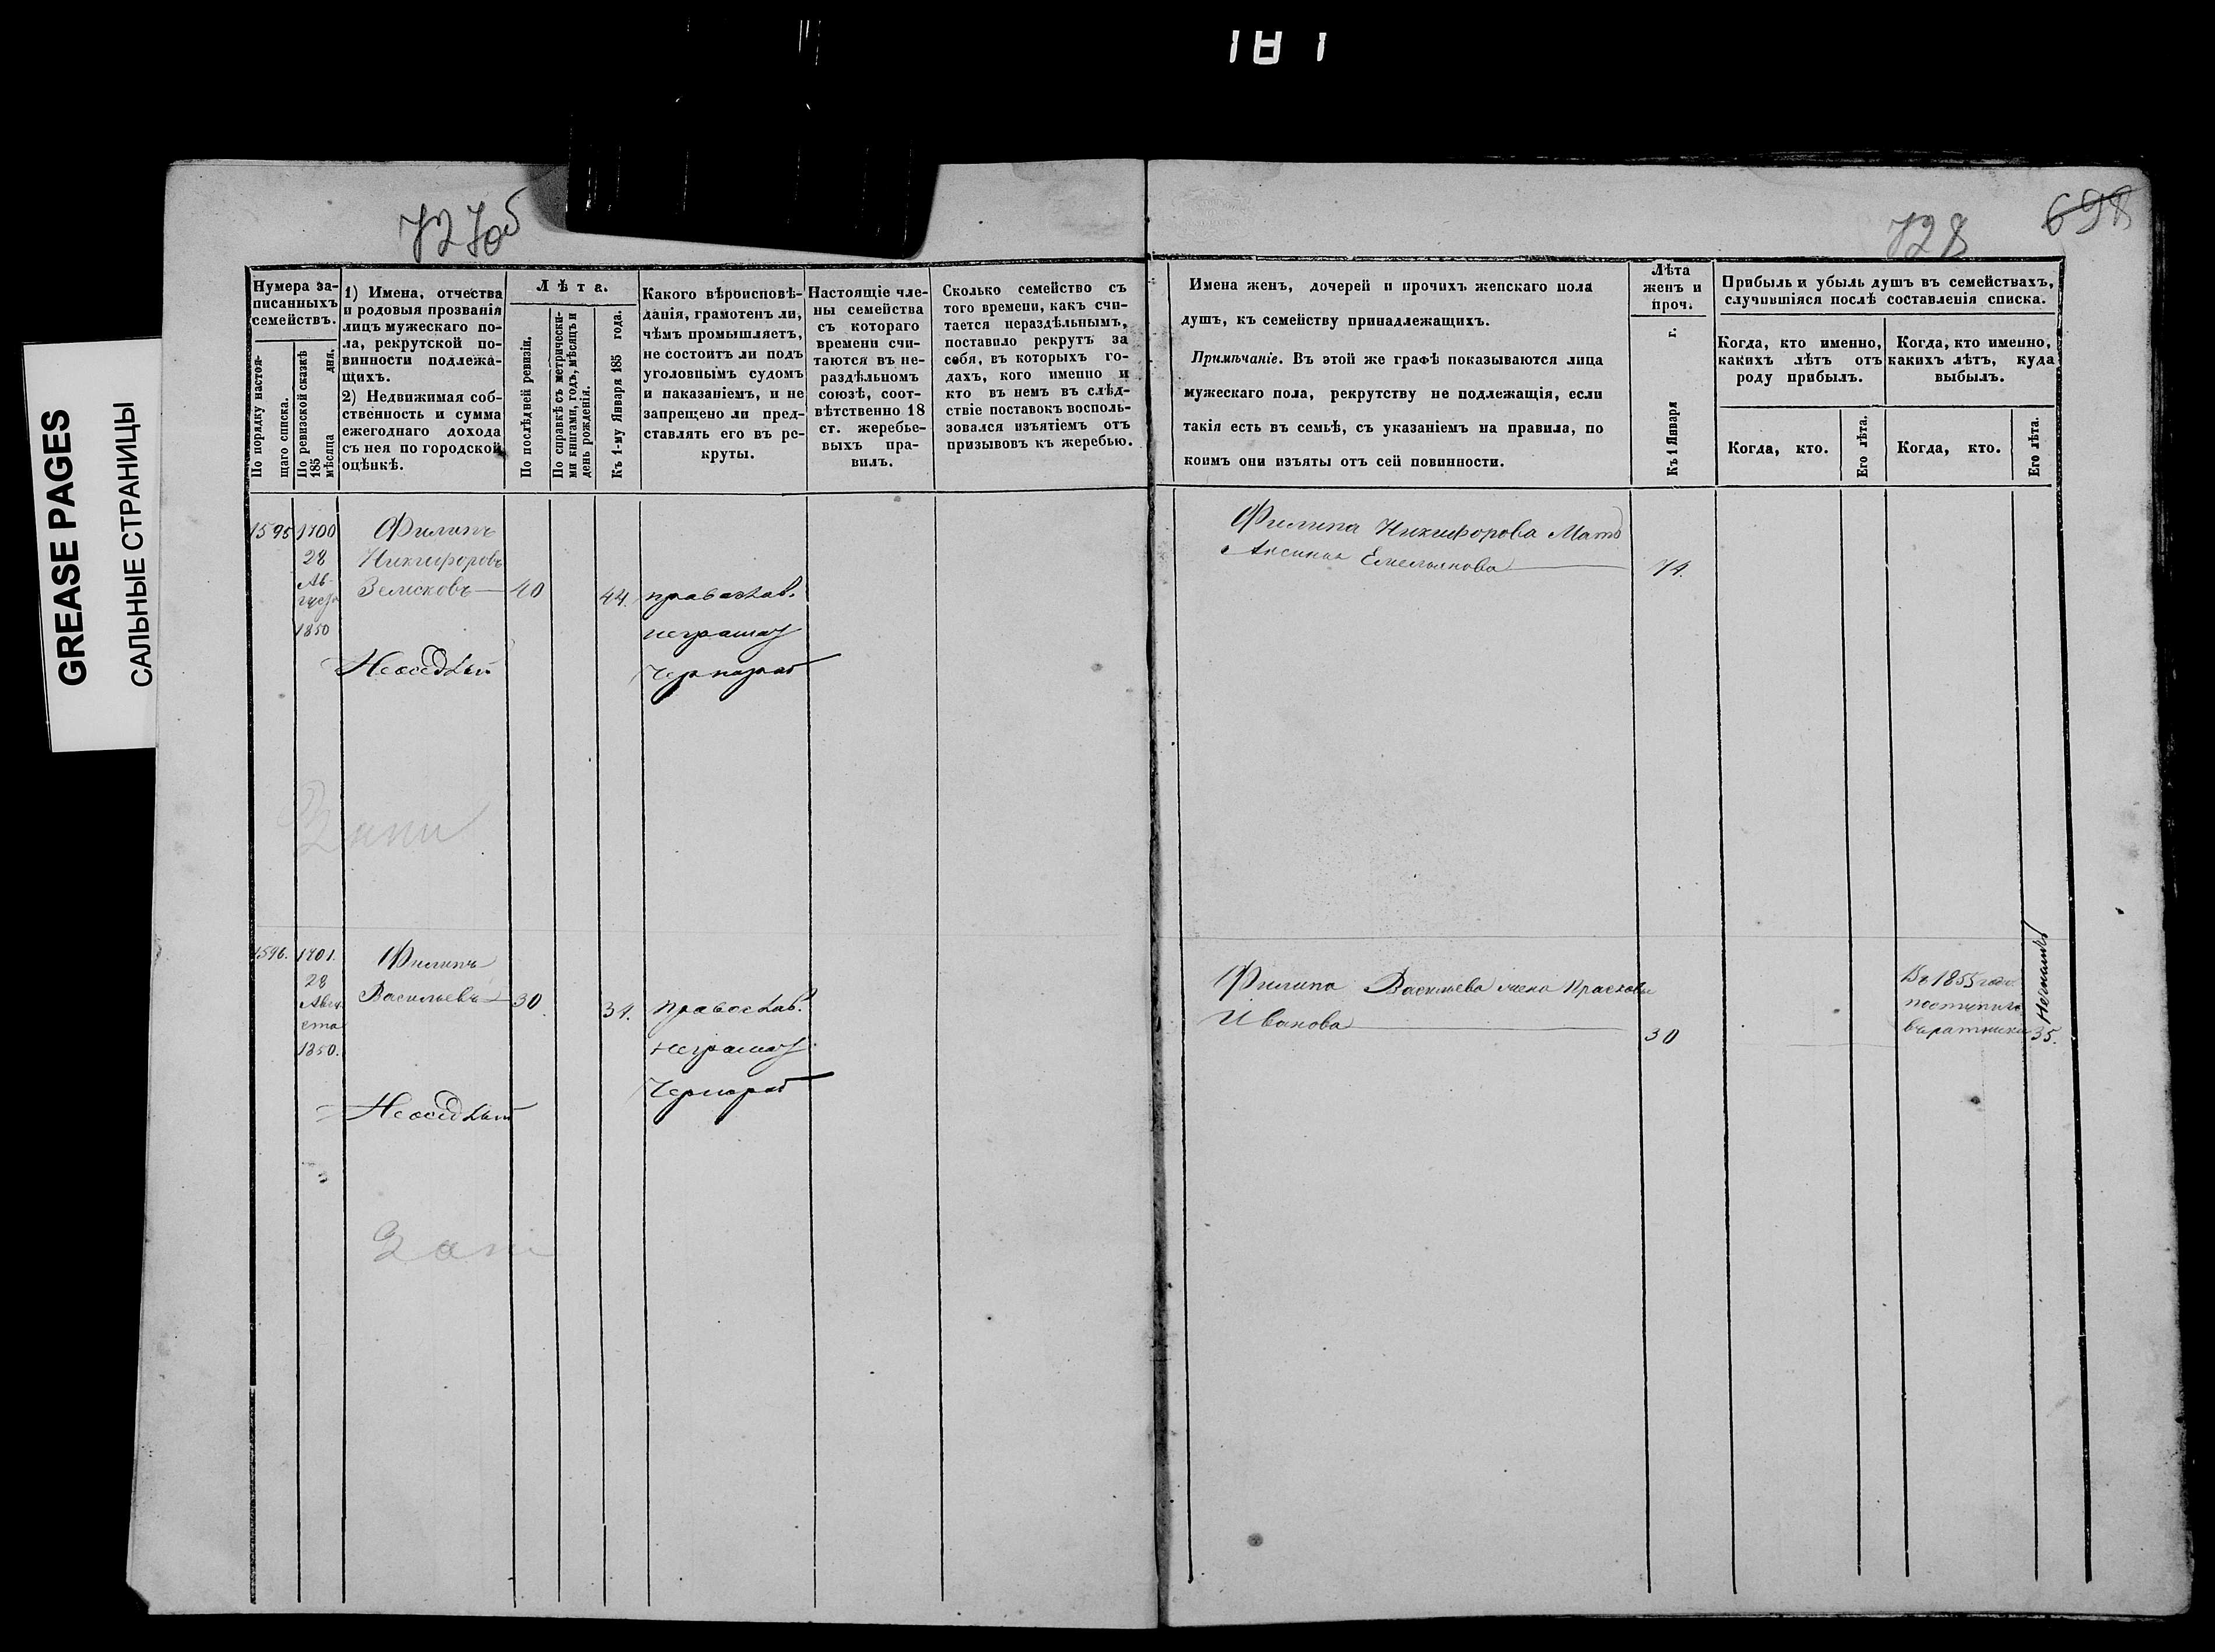 181
GREASE PAGES
САЛЬНЫЕ СТРАНИЦЫ
727об
728
698
Нумера за-
писанныхъ
семействъ.
По порядку настоя-
щаго списка.
По ревизской сказкѣ
185
мѣсяца дня.
1) Имена, отчества
и родовыя прозванія
лицъ мужескаго по-
ла, рекрутской по-
винности подлежа-
щихъ.
2) Недвижимая соб-
ственность и сумма
ежегоднаго дохода
съ нея по городской
оцѣнкѣ.
Лѣта.
По послѣдней ревизіи.
По справкѣ съ метрически-
ми книгами, годъ, мѣсяцъ и
день рожденія.
Къ 1-му Января 185 года.
Какого вѣроисповѣ-
данія, грамотенъ ли,
чѣмъ промышляетъ,
не состоитъ ли подъ
уголовнымъ судомъ
и наказаніемъ, и не
запрещено ли пред-
ставлять его въ ре-
круты.
Настоящіе чле-
ны семейства
съ котораго
времени счи-
таются въ не-
раздѣльномъ
союзѣ, соот-
вѣтственно 18
ст. жеребье-
выхъ пра-
вилъ.
Сколько семейство съ
того времени, какъ счи-
тается нераздѣльнымъ,
поставило рекрутъ за
себя, въ которыхъ го-
дахъ, кого именно и
кто въ немъ въ слѣд-
ствіе поставокъ восполь-
зовался изъятіемъ отъ
призывовъ къ жеребью.
Имена женъ, дочерей и прочихъ женскаго пола
душъ, къ семейству принадлежащихъ.
Примѣчаніе. Въ этой же графѣ показываются лица
мужескаго пола, рекрутству не подлежащія, если
такія есть въ семьѣ, съ указаніемъ на правила, по
коимъ они изъяты отъ сей повинности.
Лѣта
женъ и
проч.
Къ 1 Января г.
Прибыль и убыль душъ въ семействахъ,
случившіяся послѣ составленія списка.
Когда, кто именно,
какихъ лѣтъ отъ
роду прибылъ.
Когда, кто именно,
какихъ лѣтъ, куда
выбылъ.
Когда, кто.
Его лѣта.
Когда, кто.
Его лѣта.
1595
1700
28
Ав-
густа
1850
Филипъ
Никифоровъ
Земсковъ
40
44.
православ.
неграмот
Чернораб
Неоседлый
Филипа Никифорова Мать
Аксинья Емельянова
74.
Запи
1596.
1701.
28
Авгу
ста
1850.
Филипъ
Васильевъ
30
34.
православ.
неграмот
Чернораб
Неоседлый
Филипа Васильева жена Прасковья
Иванова
30
Въ 1855 году
поступилъ
въ ратники
35.
Запи